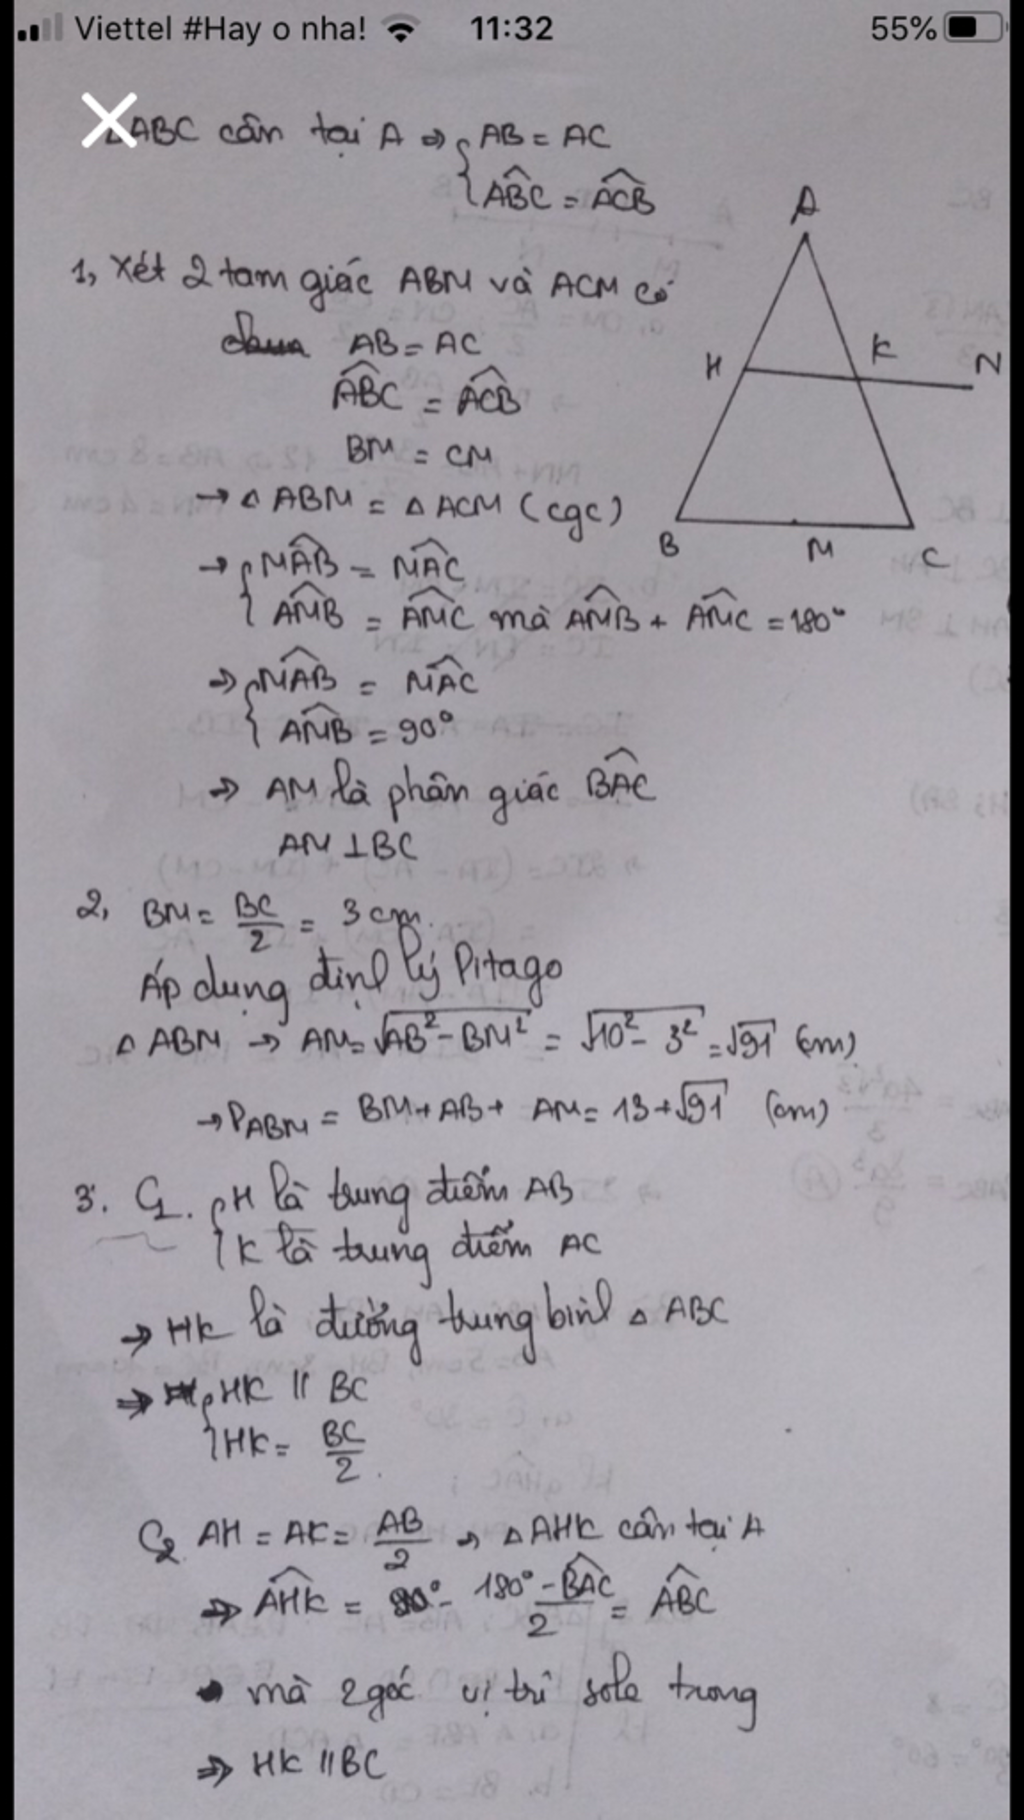 Viettel #Hay o nha! 11:32 55%
ΔABC cân tại A ⇒ { AB = AC
ABC^ = ACB^
A
1, Xét 2 tam giác ABM và ACM có
AB = AC
H K N
ABC^ = ACB^
BM = CM
→ Δ ABM = Δ ACM (cgc)
B M C
→ { MAB^ = MAC^
AMB^ = AMC^ mà AMB^ + AMC^ = 180°
⇒ { MAB^ = MAC^
AMB^ = 90°
⇒ AM là phân giác BAC^
AM ⊥ BC
2, BM = BC/2 = 3 cm.
Áp dụng định lý Pitago
Δ ABM → AM = √(AB² - BM²) = √(10² - 3²) = √91 (cm)
→ P_ABM = BM + AB + AM = 13 + √91 (cm)
3. C1. { H là trung điểm AB
K là trung điểm AC
→ HK là đường trung bình Δ ABC
⇒ { HK // BC
HK = BC/2.
C2 AH = AK = AB/2 → Δ AHK cân tại A
⇒ AHK^ = (180° - BAC^)/2 = ABC^
mà 2 góc vị trí sole trong
⇒ HK // BC